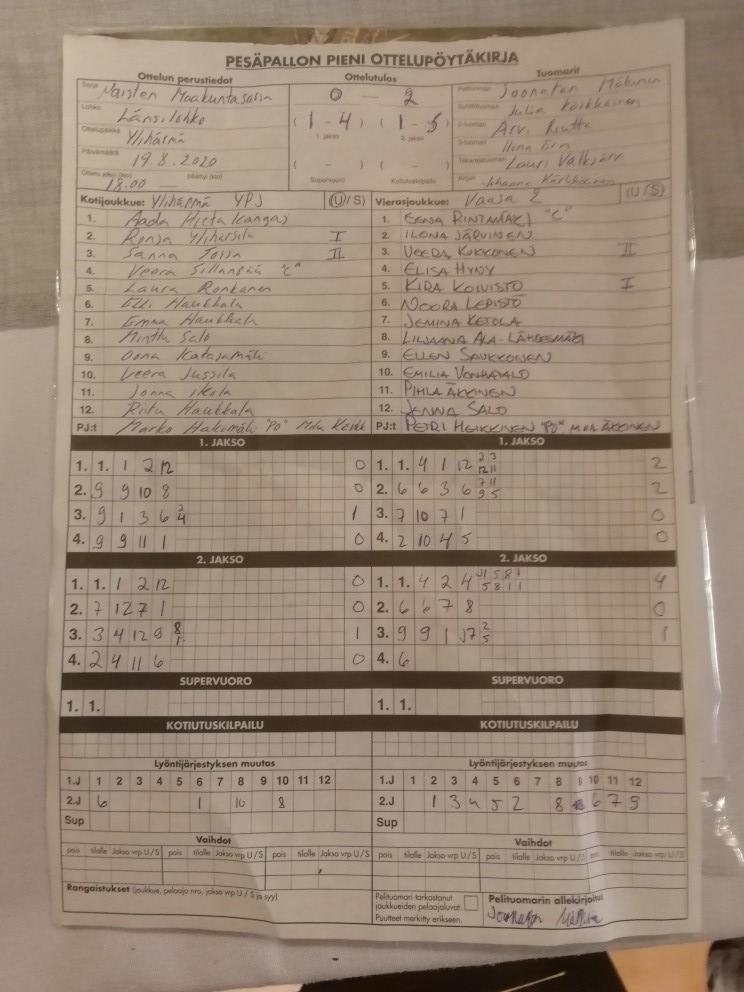 PESÄPALLON PIENI OTTELUPÖYTÄKIRJA
Ottelun perustiedot Ottelutulos Tuomarit
Sarja Naisten Maakuntasarja 0 — 2 Pelituomari Joonatan Mäkinen
Lohko Länsilohko (1 - 4) (1 - 5) Julia Karhkainen
1. jakso 2. jakso
Ottelupaikka Ylihärmä 2-tuomari Arvi
Päivämäärä 19.8.2020 ( - ) ( - ) 3-tuomari Iina
Takarajatuomari Lauri
Ottelu alkoi (klo) 18.00 — päättyi (klo) Supervuoro Kotiutuskilpailu Kirjuri Johanna
Kotijoukkue: Ylihärmä YPJ (U/S) Vierasjoukkue: Vaasa 2 (U/S)
1. Aada Hietakangas 1. EENA RINTAMÄKI "C"
2. Ronja I 2. ILONA JÄRVINEN
3. Sanna II 3. VEERA KUKKONEN II
4. Veera Sillanpää "C" 4. ELISA HYNY
5. Laura Ronkainen 5. KIRA KOIVISTO I
6. Elli Haukkala 6. NOORA LEPISTÖ
7. Emma Haukkala 7. JEMINA KETOLA
8. Minttu Salo 8. ALA-LÄHDESMÄKI
9. Oona Katajamäki 9. ELLEN SAUKKONEN
10. Veera Jussila 10. EMILIA
11. Jonna 11. PIHLA ÄKKINEN
12. Riitu Haukkala 12. JENNA SALO
PJ:t Marko "PO" PJ:t PETRI HEIKKINEN "PO" MIKA ÄKKINEN
1. JAKSO 1. JAKSO
1. 1. 1 2 12 0 1. 1. 4 1 12 2 3 12 11 2
2. 9 9 10 8 0 2. 6 6 3 6 7 11 9 5 2
3. 9 1 3 6 2 4 1 3. 7 10 7 1 0
4. 9 9 11 1 0 4. 2 10 4 5 0
2. JAKSO 2. JAKSO
1. 1. 1 2 12 0 1. 1. 4 2 4 11 5 8 1 5 8 1 1 4
2. 7 12 7 1 0 2. 6 6 7 8 0
3. 3 4 12 9 8 1 1 3. 9 9 1 2 5 1
4. 2 4 11 6 0 4. 6
SUPERVUORO SUPERVUORO
1. 1. 1. 1.
KOTIUTUSKILPAILU KOTIUTUSKILPAILU
Lyöntijärjestyksen muutos Lyöntijärjestyksen muutos
1.J 1 2 3 4 5 6 7 8 9 10 11 12 1.J 1 2 3 4 5 6 7 8 9 10 11 12
2.J 6 1 10 8 2.J 1 3 4 5 2 8 6 7 9
Sup Sup
Vaihdot Vaihdot
pois tilalle Jakso vrp U/S pois tilalle Jakso vrp U/S pois tilalle Jakso vrp U/S pois tilalle Jakso vrp U/S pois tilalle Jakso vrp U/S pois tilalle Jakso vrp U/S
Rangaistukset (joukkue, pelaaja nro, jakso vrp U/S ja syy) Pelituomari tarkastanut joukkueiden pelaajaluvat. Pelituomarin allekirjoitus
Puutteet merkitty erikseen.